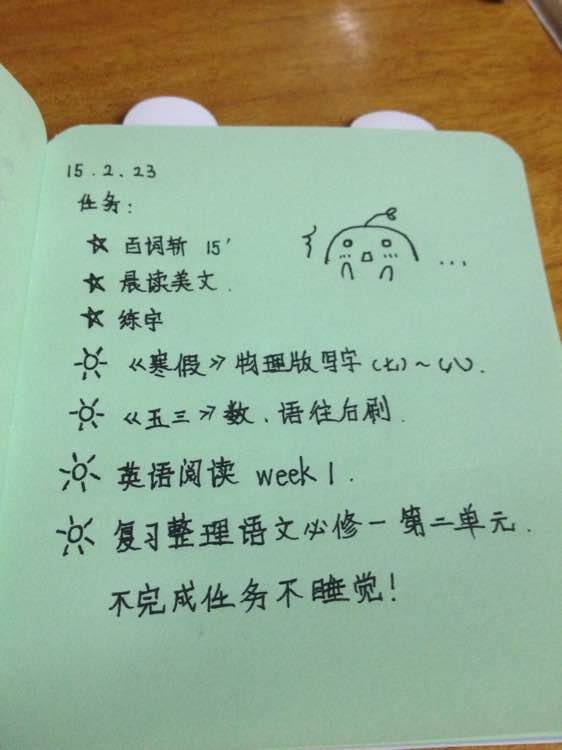 15.2.23
任务:
☆ 百词斩 15′
☆ 晨读美文.
☆ 练字
《寒假》物理版写字(七)~(八).
《五三》数、语往后刷.
英语阅读 week 1.
复习整理语文必修一第二单元.
不完成任务不睡觉!
...